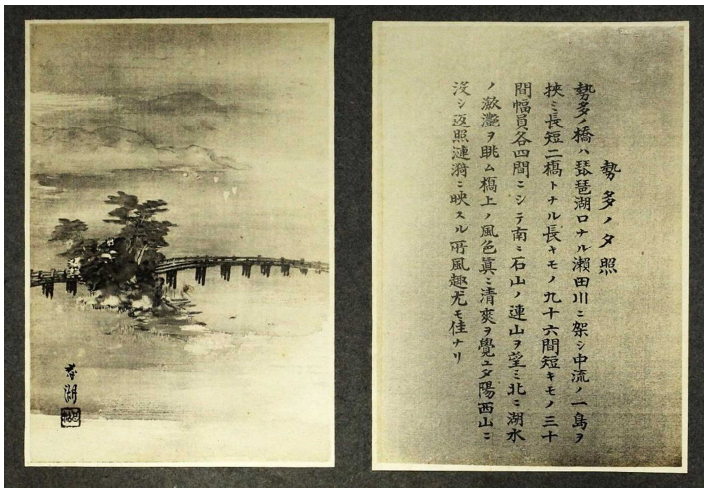 勢多ノ夕照
勢多ノ橋ハ琵琶湖口ナル瀬田川ニ架シ中流ノ一島ヲ
挾ミ長短二橋トナル長キモノ九十六間短キモノ三十
間幅員各四間ニシテ南ニ石山ノ連山ヲ望ミ北ニ湖水
ノ瀲灔ヲ眺ム橋上ノ風色眞ニ清爽ヲ覺ユ夕陽西山ニ
没シ返照漣漪ニ映スル所風趣尤モ佳ナリ